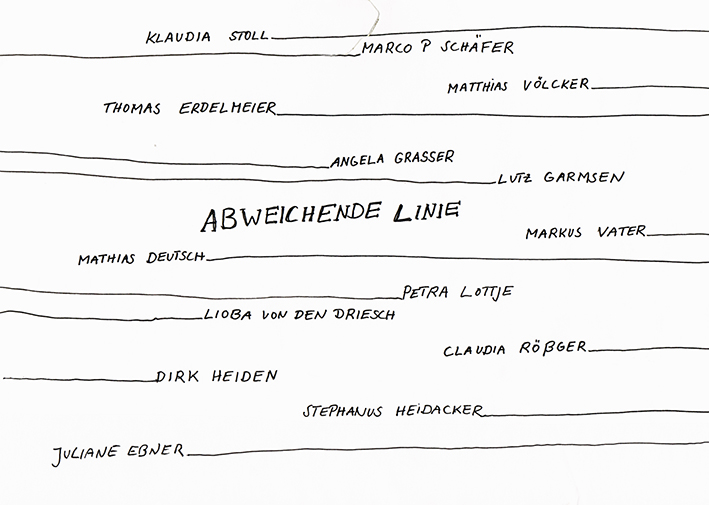 KLAUDIA STOLL
MARCO P SCHÄFER
MATTHIAS VÖLCKER
THOMAS ERDELMEIER
ANGELA GRASSER
LUTZ GARMSEN
ABWEICHENDE LINIE
MARKUS VATER
MATHIAS DEUTSCH
PETRA LOTTJE
LIOBA VON DEN DRIESCH
CLAUDIA RÖßGER
DIRK HEIDEN
STEPHANUS HEIDACKER
JULIANE EBNER